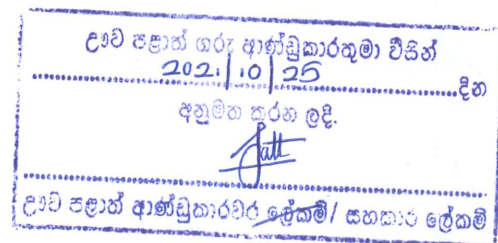 ඌව පළාත් ගරු ආණ්ඩුකාරතුමා විසින්
2021/10/25 දින
අනුමත කරන ලදි.
ඌව පළාත් ආණ්ඩුකාරවර ලේකම්/ සහකාර ලේකම්